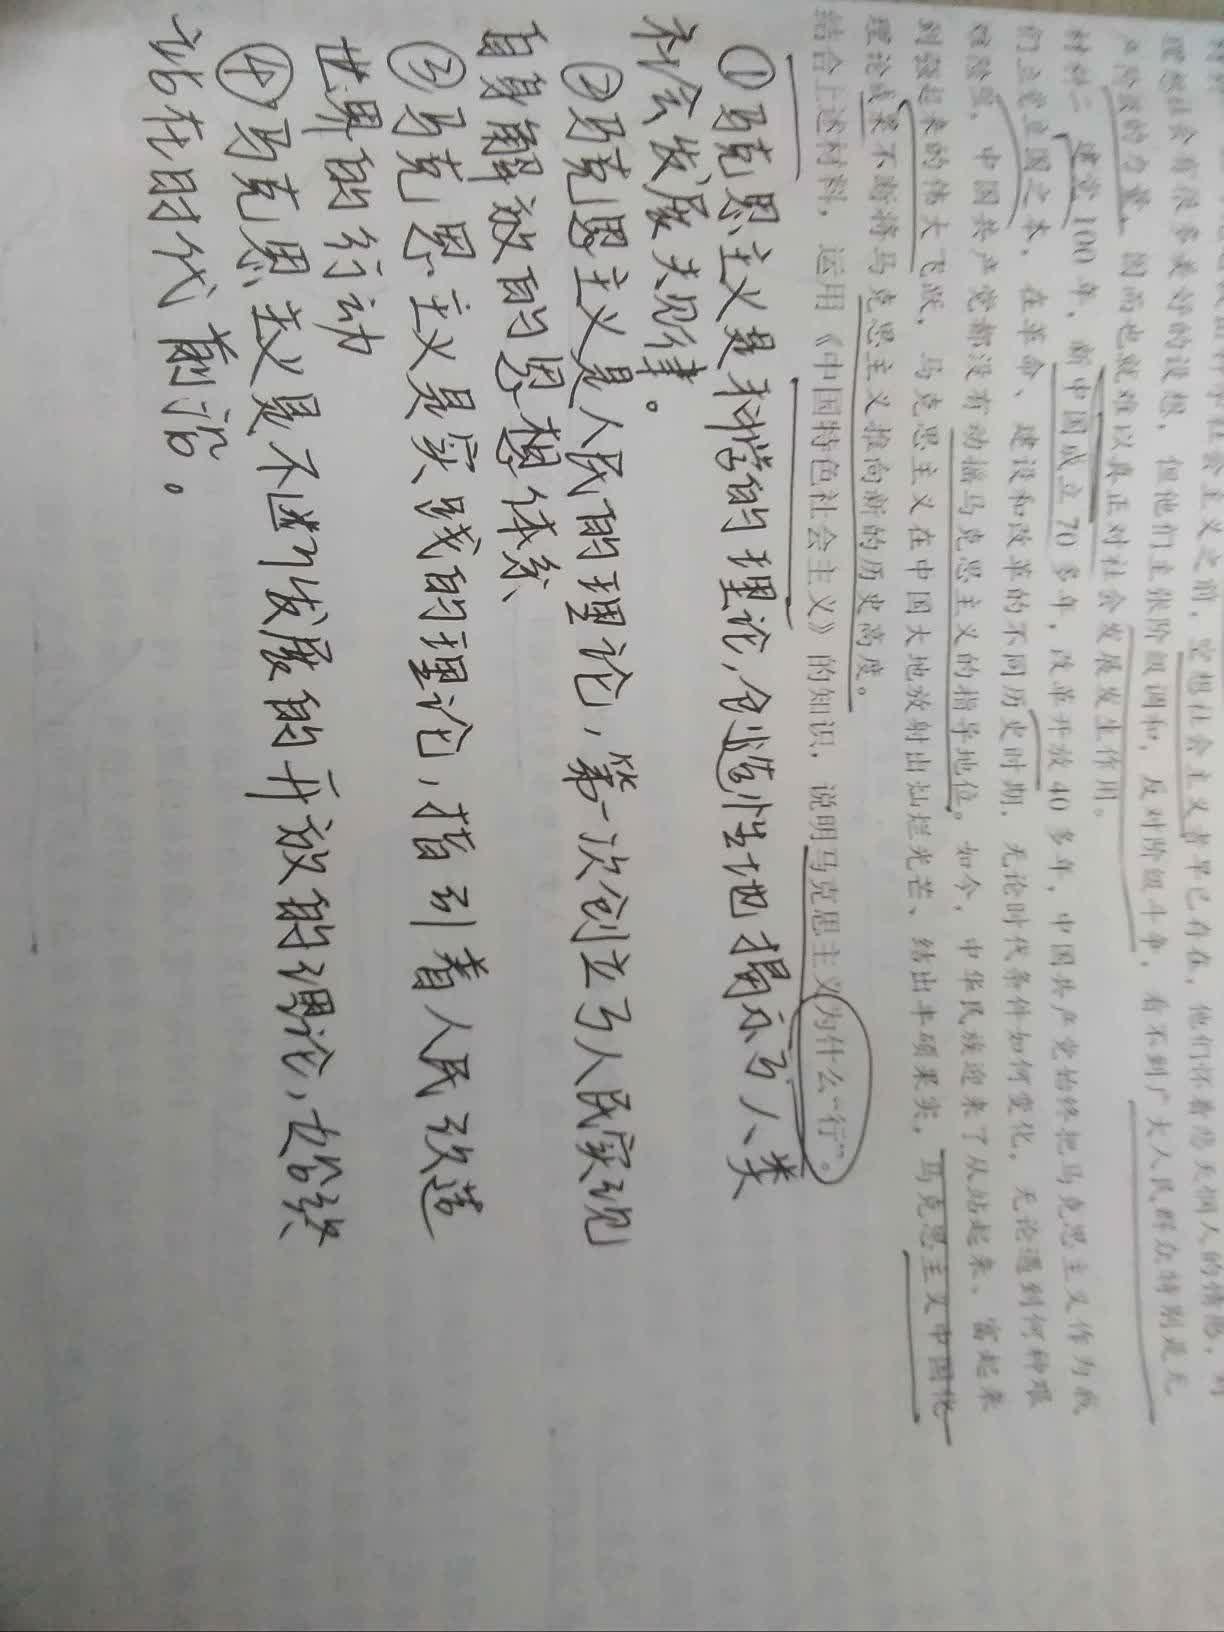 社会主义之前，空想社会主义者早已存在，他们怀着悲天悯人的情感，对
理想社会有很多美好的设想，但他们主张阶级调和，反对阶级斗争，看不到广大人民群众特别是无
产阶级的力量，因而也就难以真正对社会发展发生作用。
材料二 建党100年，新中国成立70多年，改革开放40多年，中国共产党始终把马克思主义作为我
们立党立国之本，在革命、建设和改革的不同历史时期，无论时代条件如何变化，无论遇到何种艰
难险重，中国共产党都没有动摇马克思主义的指导地位。如今，中华民族迎来了从站起来、富起来
到强起来的伟大飞跃，马克思主义在中国大地放射出灿烂光芒、结出丰硕果实，马克思主义中国化
理论成果不断将马克思主义推向新的历史高度。
结合上述材料，运用《中国特色社会主义》的知识，说明马克思主义为什么“行”。
①马克思主义是科学的理论，创造性地揭示了人类
社会发展规律。
②马克思主义是人民的理论，第一次创立了人民实现
自身解放的思想体系、
③马克思主义是实践的理论，指引着人民改造
世界的行动
④马克思主义是不断发展的开放的理论，始终
站在时代前沿。